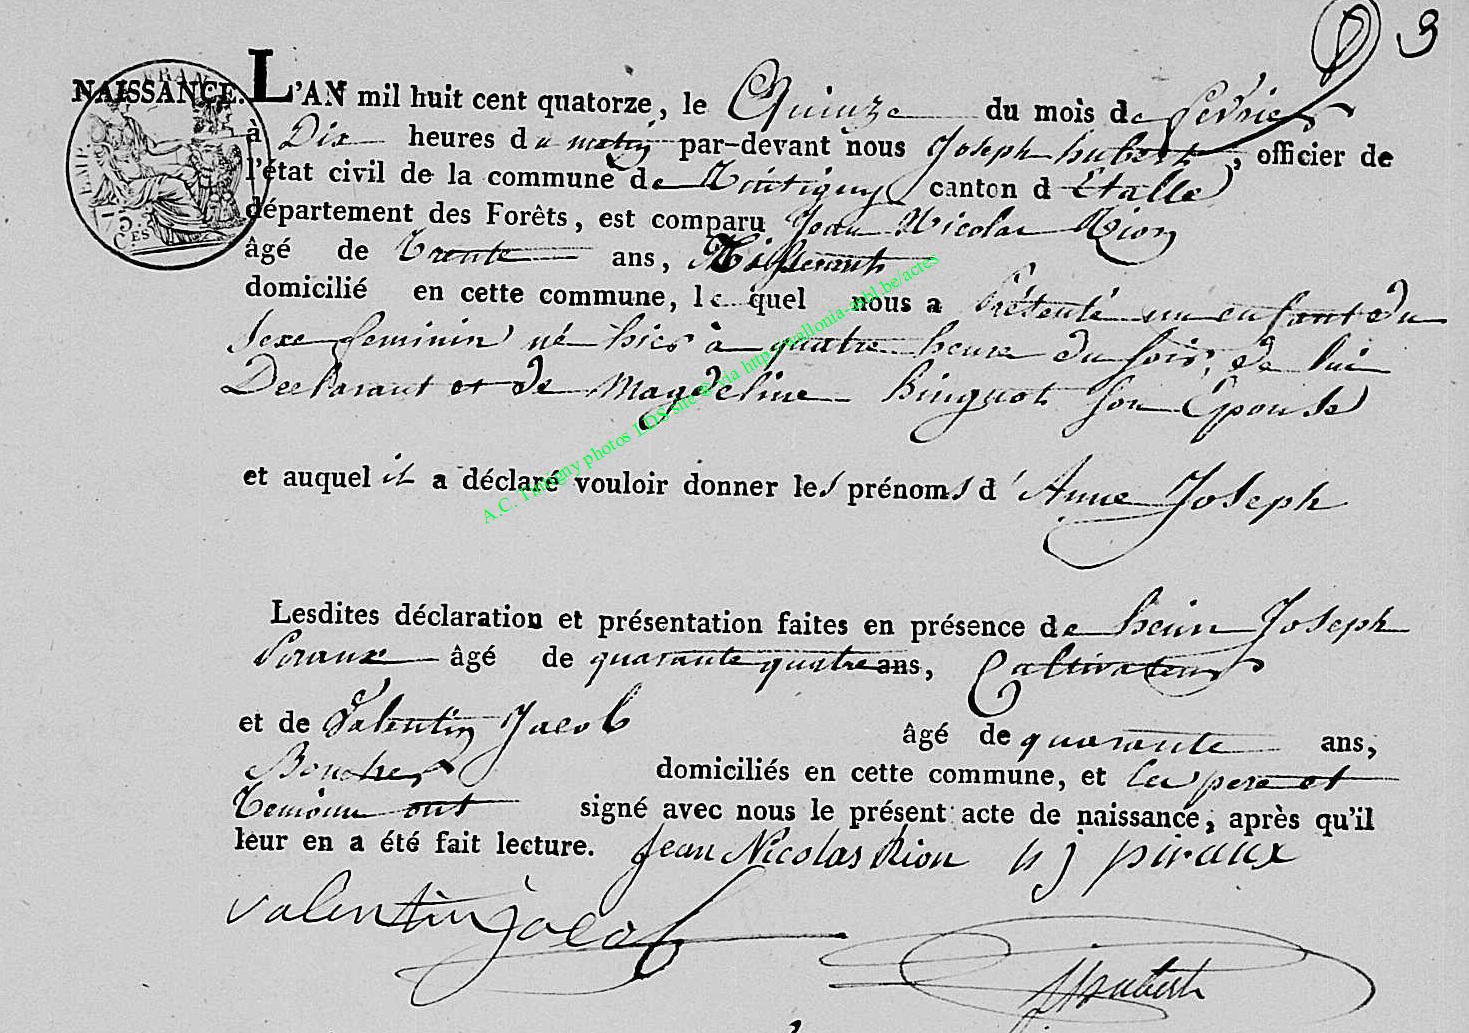 9
NAISSANCE. L'AN mil huit cent quatorze, le Quinze du mois de fevrier
à Dix heures du matin par-devant nous Joseph hubert, officier de
l'état civil de la commune de canton d Etalle
département des Forêts, est comparu Jean Nicolas Rion
âgé de trente ans,
domicilié en cette commune, le quel nous a Présenté un enfant du
Sexe feminin né hier à quatre heure du soir, de lui
Declarant et de Magdeline Binguot son Epouse
et auquel il a déclaré vouloir donner les prénoms d'Anne Joseph
Lesdites déclaration et présentation faites en présence de Joseph
Piraux âgé de quarante quatre ans, Cultivateur
et de Valentin Jacob âgé de quarante ans,
domiciliés en cette commune, et les pere et
temoins ont signé avec nous le présent acte de naissance, après qu'il
leur en a été fait lecture. Jean Nicolas Rion h j piraux
valentin jacob
JHubert
EMP. FRAN
75
CES
A.C. Tintigny photos LDS site @ via http://wallonia-asbl.be/actes